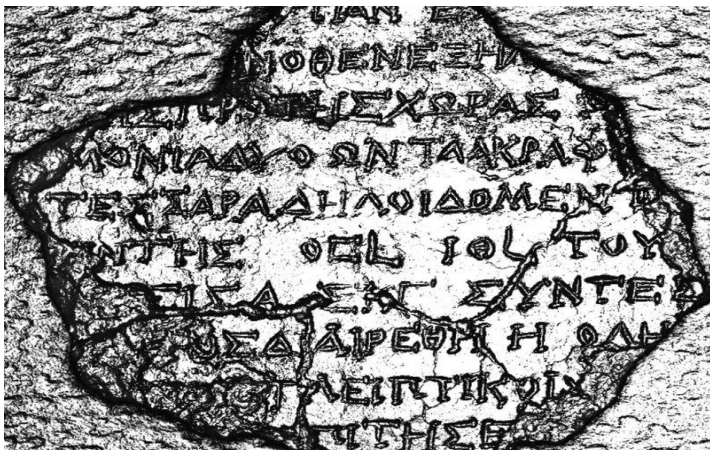 ΠΑΝ Ε
ΝΟΘΕΝ ΕΞΗΛ
ΙΣ ΠΡΩΤΗΣ ΧΩΡΑΣ
ΜΟΝΙΑ ΔΥΟ ΩΝ ΤΑ ΑΚΡΑ Φ
ΤΕΣΣΑΡΑ ΔΗΛΟΙ Δ Ο ΜΕΝ
ΤΗΣ ΟϚL ΙΘL ΤΟΥ
ΕΙΣ ΣΚΓ ΣΥΝ ΤΕΣ
ΔΙΑΙΡΕΘΗ Η ΟΛΗ
ΛΕΙΠΤΙΚΟΙ Χ
ΠΙ ΤΗΣ Ε